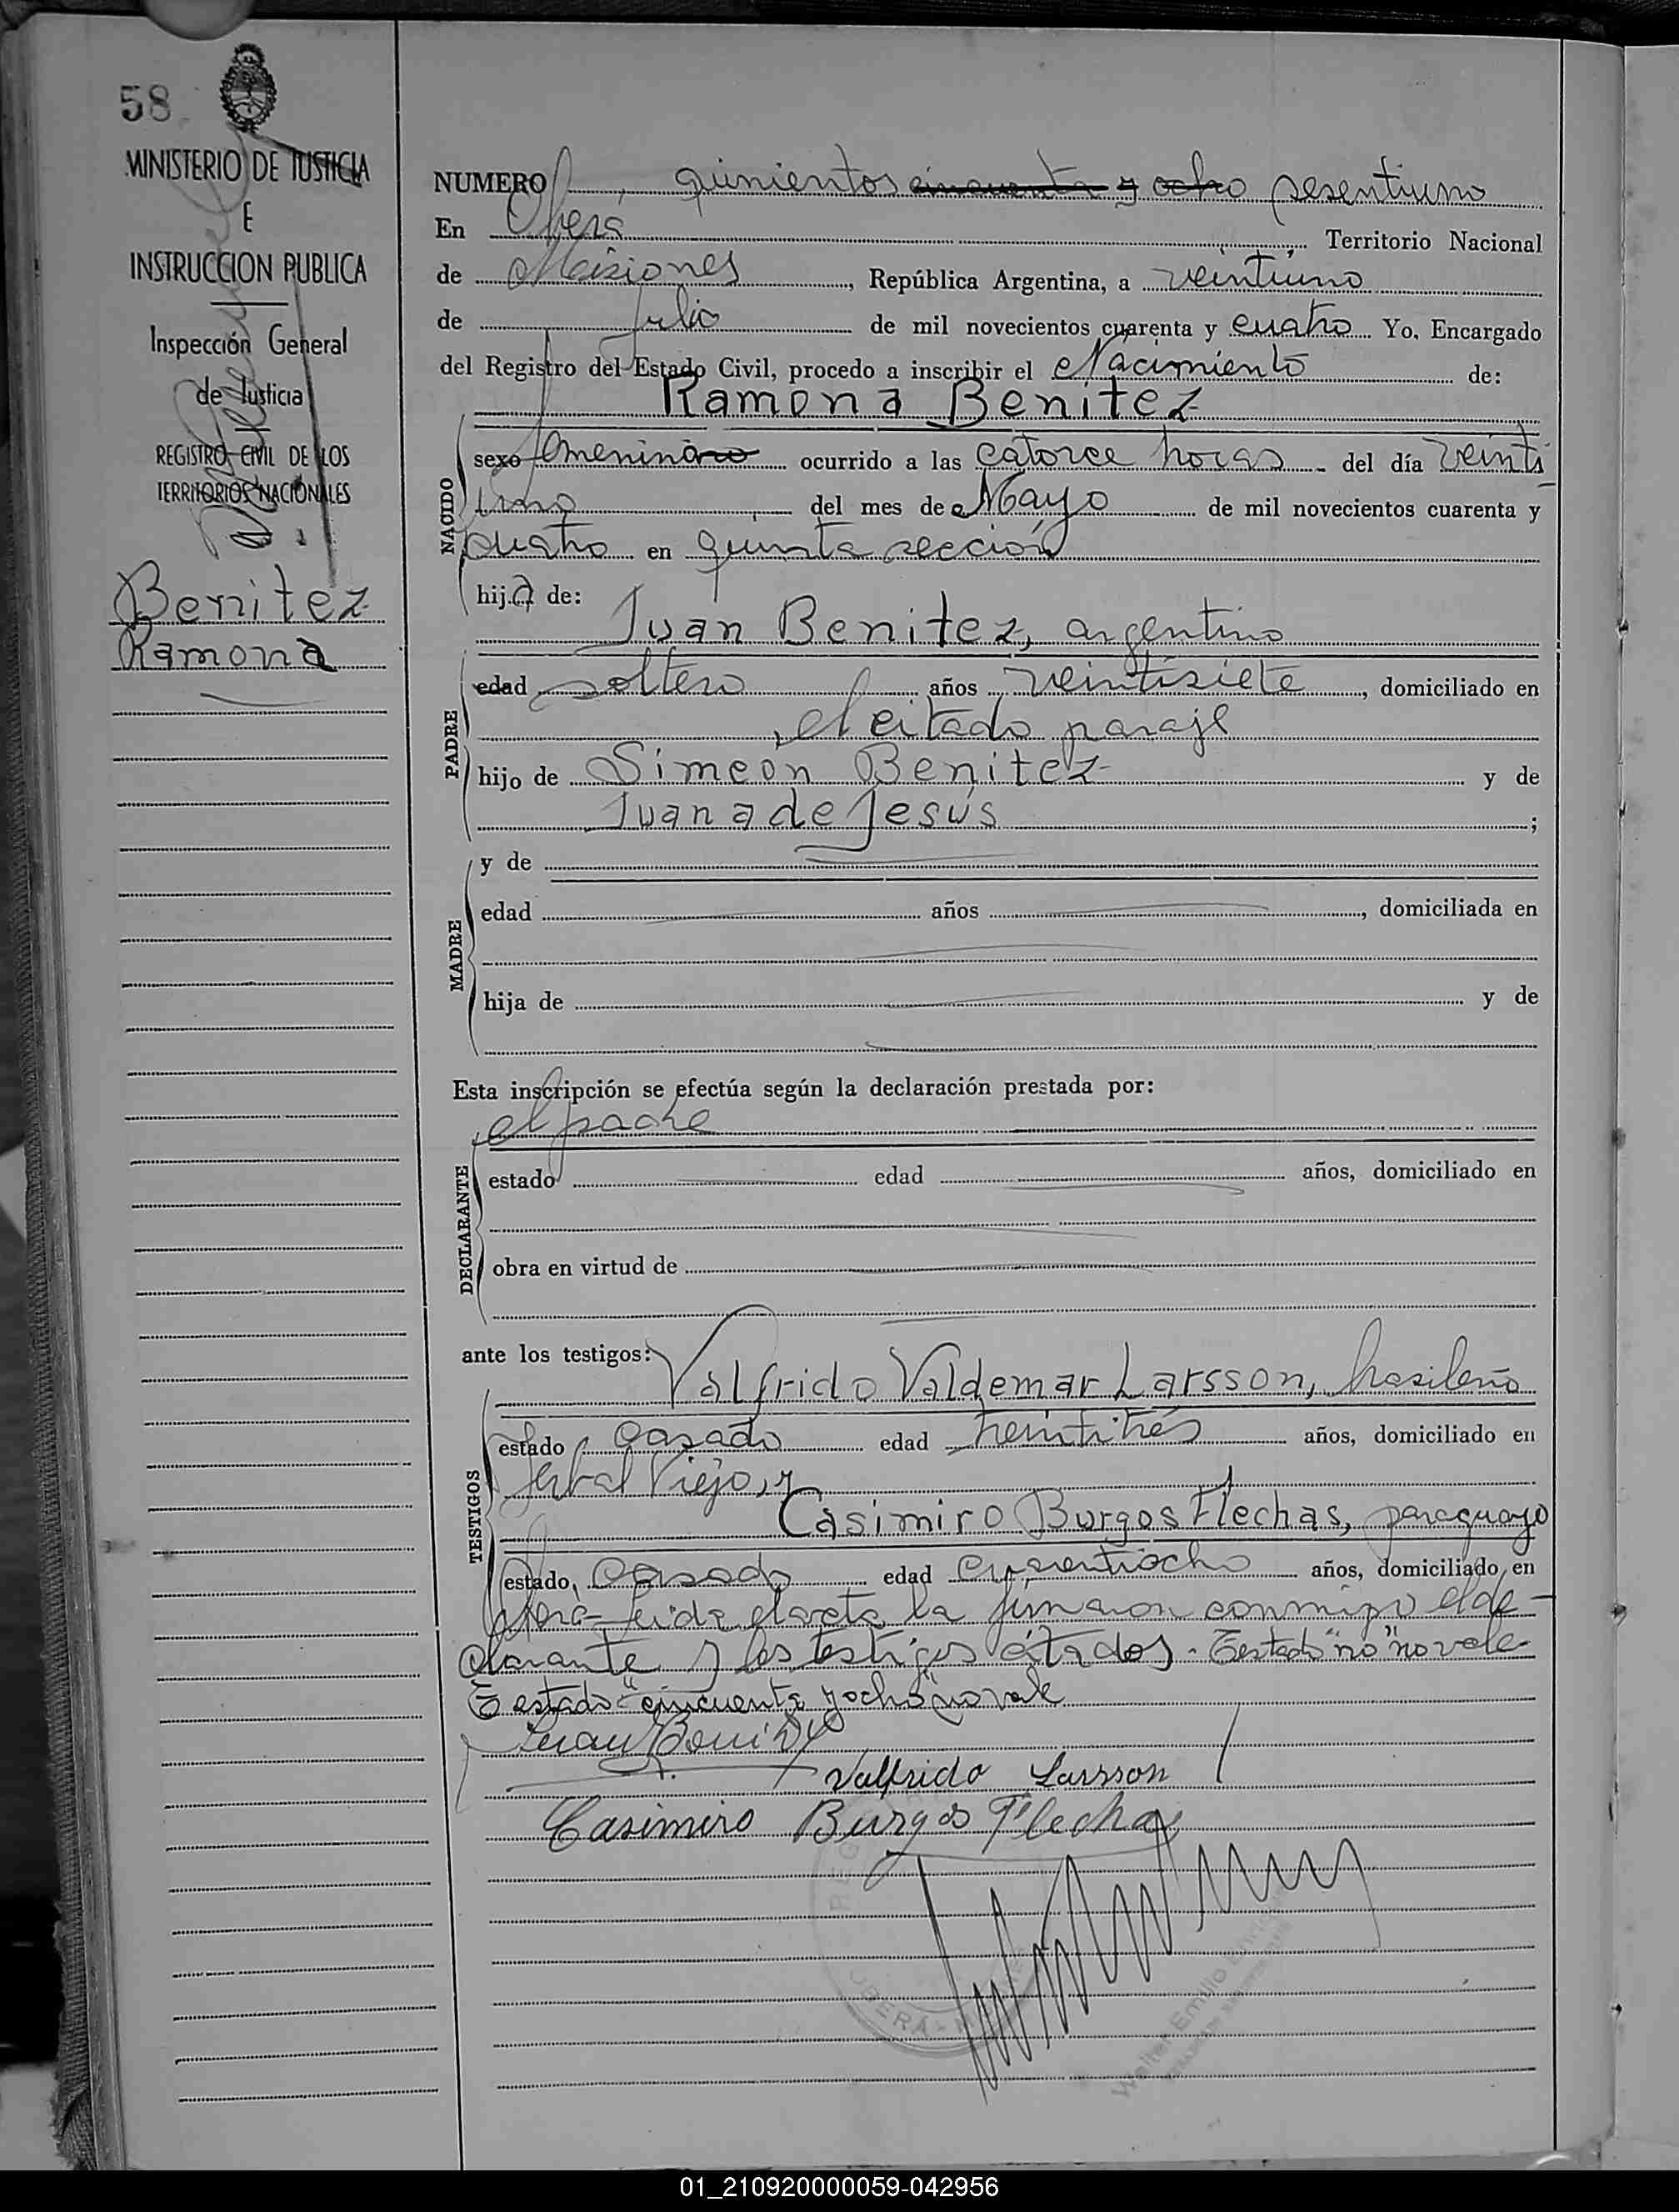 58
MINISTERIO DE JUSTICIA
E
INSTRUCCION PUBLICA
Inspección General
de Justicia
REGISTRO CIVIL DE LOS
TERRITORIOS NACIONALES
Benitez
Ramona
NUMERO quinientos cincuenta y ocho sesentiuno
En Oberá Territorio Nacional
de Misiones, República Argentina, a veintiuno
de julio de mil novecientos cuarenta y cuatro Yo, Encargado
del Registro del Estado Civil, procedo a inscribir el Nacimiento de:
Ramona Benitez
NACIDO
sexo femenino ocurrido a las catorce horas del día veinti
uno del mes de Mayo de mil novecientos cuarenta y
cuatro en quinta sección
hija de:
PADRE
Juan Benitez, argentino
edad soltero años veintisiete, domiciliado en
el citado paraje
hijo de Simeón Benitez y de
Juana de Jesús ;
MADRE
y de
edad años , domiciliada en
hija de y de
Esta inscripción se efectúa según la declaración prestada por:
DECLARANTE
el padre
estado edad años, domiciliado en
obra en virtud de
ante los testigos:
TESTIGOS
Valfrido Valdemar Larsson, brasileño
estado casado edad treintitrés años, domiciliado en
Yerbal Viejo, y
Casimiro Burgos Flechas, paraguayo
estado casado edad cuarentiocho años, domiciliado en
Oberá - leída el acta, la firmaron conmigo el de-
clarante y los testigos citados - Testado "no" no vale
Testado "cincuenta y ocho" no vale
Juan Benitez
Valfrido Larsson
Casimiro Burgos Flechas
OBERÁ - M
Walter Emilio
01_210920000059-042956